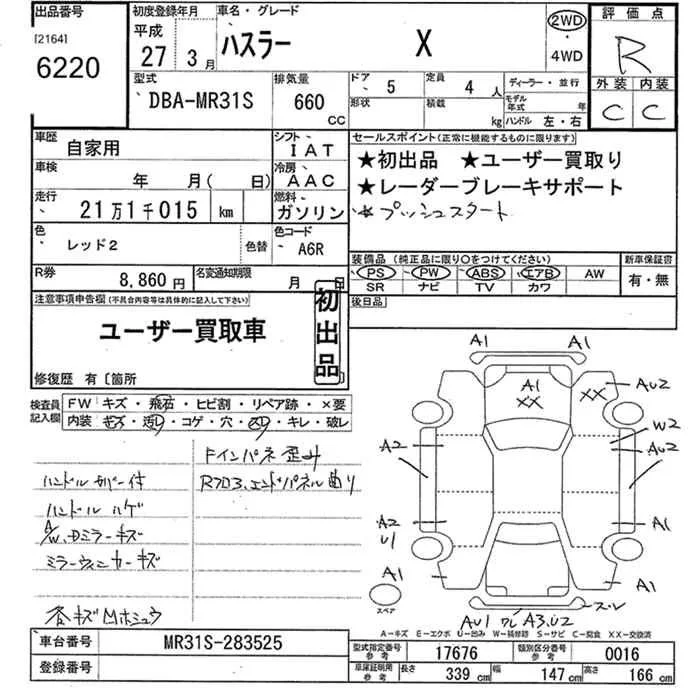 出品番号
[2164]
6220
初度登録年月
平成
27 3月
車名・グレード
ハスラー X
2WD
・
4WD
評価点
R
外装 内装
C C
型式
DBA-MR31S
排気量
660
CC
ドア
5
定員
4 人
形状
積載
kg
ディーラー・並行
モデル年式 年
ハンドル 左・右
車歴
自家用
シフト
IAT
車検
年 月( 日)
冷房
AAC
走行
21万1千015 km
燃料
ガソリン
色
レッド2
色替
色コード
A6R
R券
8,860円
名変通知期限
月 日
セールスポイント(正常に機能するものに限ります)
★初出品 ★ユーザー買取り
★レーダーブレーキサポート
★プッシュスタート
装備品(純正品に限り○をつけてください)
PS PW ABS エアB AW
SR ナビ TV カワ
新車保証書
有・無
後日品
注意事項申告欄(不具合内容等は具体的に記入して下さい)
ユーザー買取車
初出品
修復歴 有〔箇所
検査員記入欄
FW キズ・飛石・ヒビ割・リペア跡・×要
内装 キズ・汚レ・コゲ・穴・スレ・キレ・破レ
ハンドルカバー付
ハンドルハゲ
A/W、Dミラーキズ
ミラーウィンカーキズ
Fインパネ歪み
Rフロア、エンドパネル曲り
各キズMホシュウ
A1 A1
A1
XX
XX
AU2
W2
AU2
A2
A2
U1
A1
A1
A1
スペア
スレ
AU1 ワレ A3、U2
A-キズ E-エクボ U-凹み W-補修跡 S-サビ C-腐食 XX-交換済
車台番号
MR31S-283525
登録番号
型式指定番号
参考
17676
類別区分番号
参考
0016
車庫証明用
参考
長さ
339 cm
幅
147 cm
高さ
166 cm